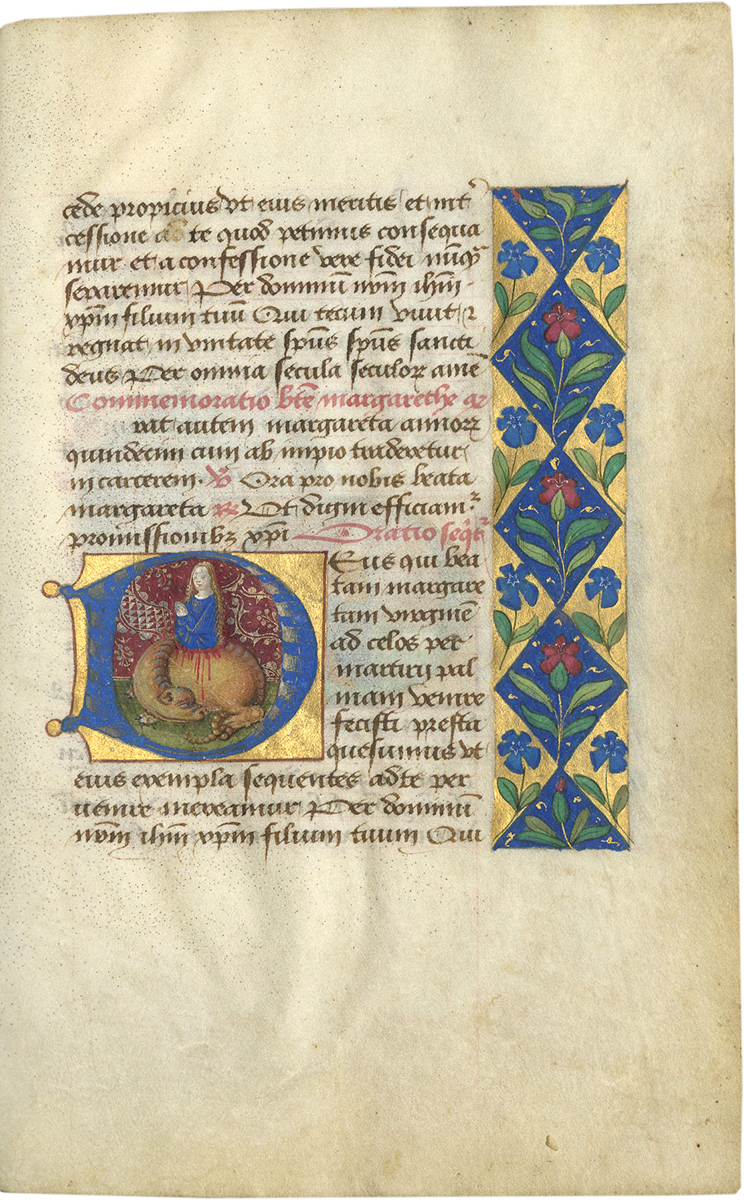 cede propicius vt eius meritis et int
cessione ad te quod petimus consequa
mur et a confessione vere fidei nūqʒ
separemur Per dominū nr̄m ihm̄
xp̄m filium tuū Qui tecum viuit ⁊
regnat in vnitate sp̄us sp̄us sancti
deus Per omnia secula seculoꝝ amē
Commemoratio bt̄e margarethe
rat autem margareta annorꝝ
quindecim cum ab impio traderetur
in carcerem · ℣ Ora pro nobis beata
margareta ℟ Ut digni efficiamʳ
promissionibꝫ xp̄i Oratio seqt̄ʳ
Deus qui bea
tam margare
tam virginē
ad celos per
martirij pal
mam venire
fecisti presta
quesumus vt
eius exempla sequentes ad te per
uenire mereamur Per dominū
nr̄m ihm̄ xp̄m filium tuum Qui